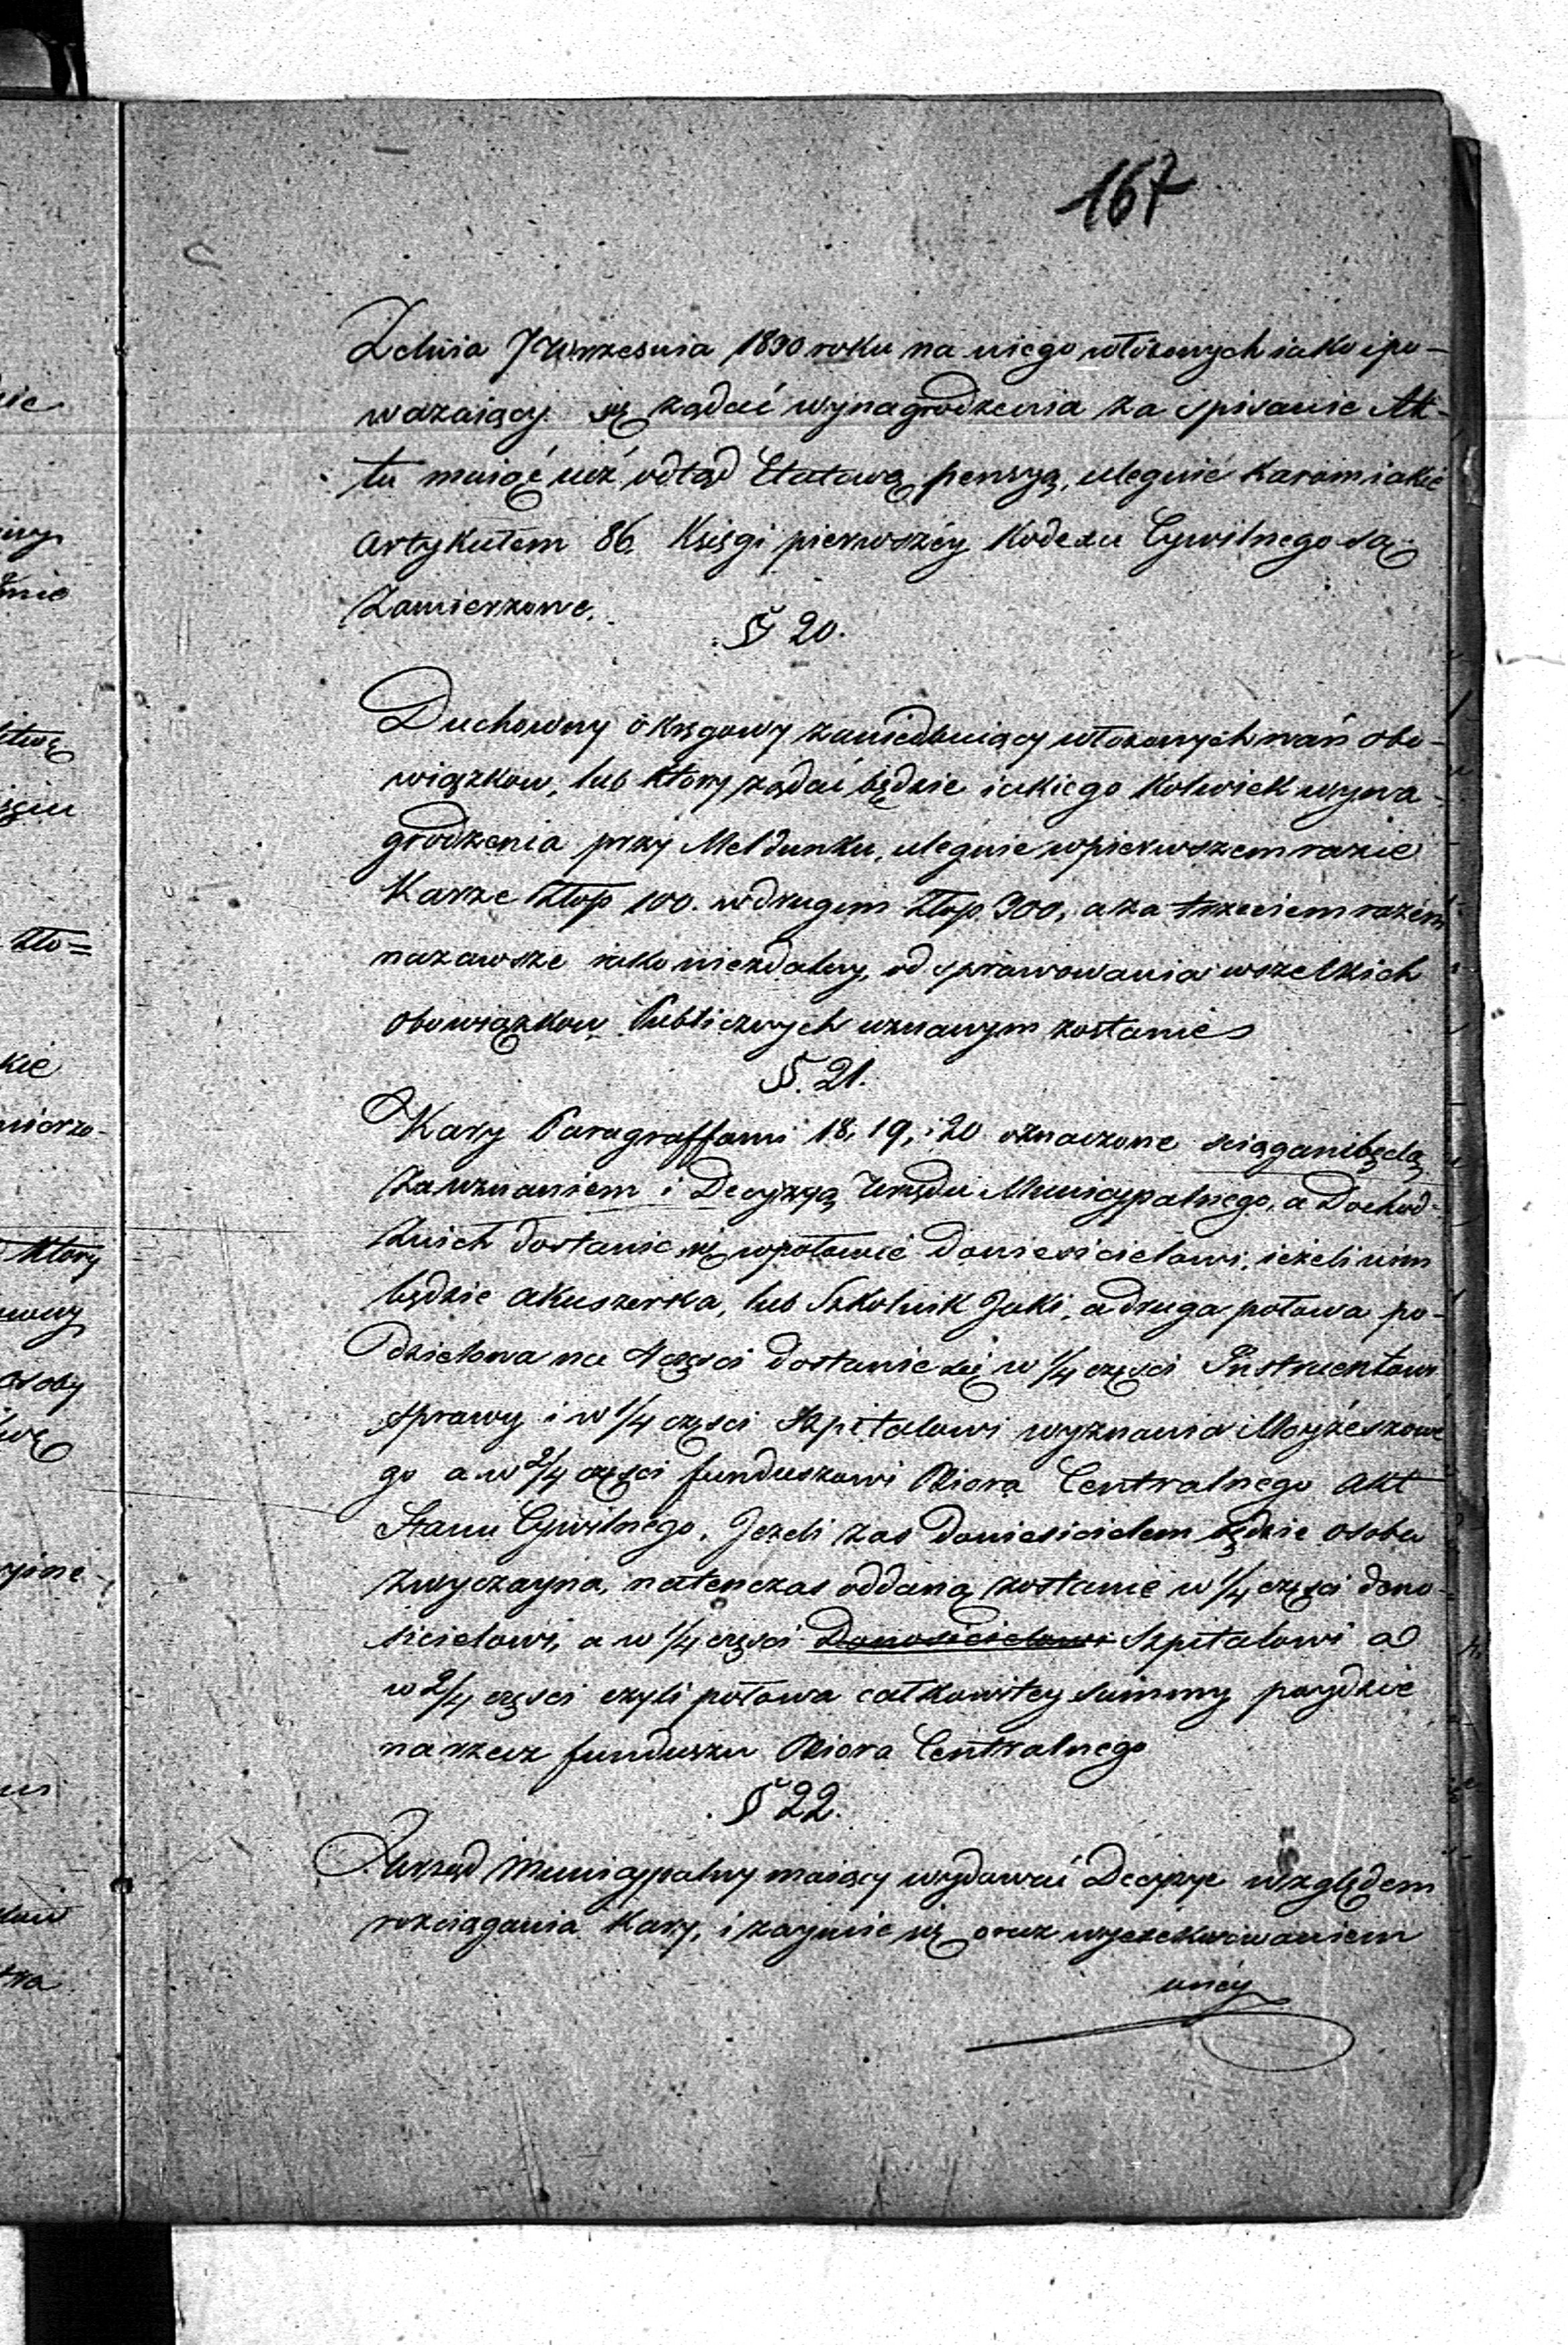 167
Z dnia 7 Września 1830 roku na niego włożonych iako i po-
ważaiący się żądać wynagrodzenia za spisanie Ak-
tu maiąć iuż odtąd Etatową pensyą, ulegnie karom iakie
Artykułem 86. Księgi pierwszéy Kodexu Cywilnego są
Zamierzone.
§ 20.
Duchowny okręgowy zaniedbuiący włożonych nań obo-
wiązkow, lub który żądać będzie iakiego kolwiek wyna-
grodzenia przy Meldunku, ulegnie w pierwszem razie
Karze Złop 100. w drugim Złop. 300, a za trzeciem razem
nazawsze iako niezdatny, od sprawowania wszelkich
obowiązkow Publicznych uznanym zostanie
§. 21.
Kary Paragraffami 18, 19, i 20 oznaczone sciągani będą
Za uznaniem i Decyzyą Urzędu Municypalnego, a Dochod
z nich dostanie się w połowie Doniesicielowi, ieżeli nim
będzie akuszerka, lub Szkolnik Jaki, a druga połowa po-
dzielona na 4 częsci dostanie się w 1/4 częsci Instruentowi
sprawy i w 1/4 częsci Szpitalowi wyznania Moyżeszowe
go a w 2/4 częsci funduszowi Biora Centralnego Akt
Stanu Cywilnego. Jeżeli zas Doniesicielem będzie osoba
Zwyczayna, natenczas oddaną zostanie w 1/4 częsci dono-
sicielowi, a w 1/4 częsci Donosicielowi Szpitalowi a
w 2/4 częsci czyli połowa całkowitey summy poydzie
na rzecz funduszu Biora Centralnego
§ 22.
Urząd Municypalny maiący wydawać Decyzye względem
rozciągania Kary, i zaymie się oraz wyexekwowaniem
onéy